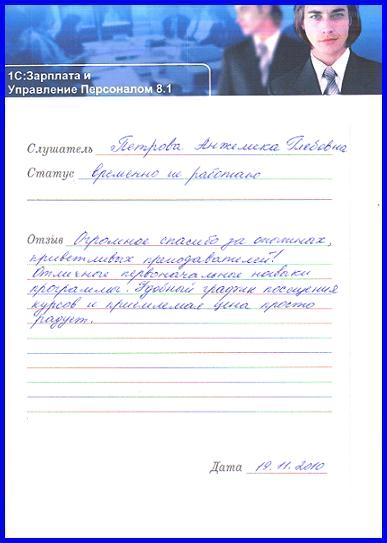 1С:Зарплата и
Управление Персоналом 8.1
Слушатель Петрова Анжелика Глебовна
Статус временно не работаю
Отзыв Огромное спасибо за опытных,
приветливых преподавателей!
Отличные первоначальные навыки
программы! Удобный график посещения
курсов и приемлемая цена просто
радует.
Дата 19.11.2010